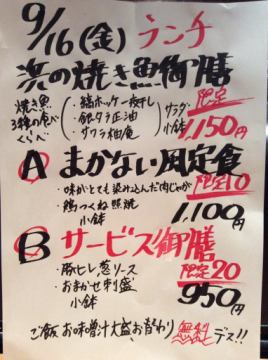 9/16(金) ランチ
浜の焼き魚御膳
焼き魚3種の食べくらべ
・縞ホッケ一夜干し
・銀タラ正油
・サワラ柚庵
サラダ
小鉢
限定
1,150円
A まかない風定食
・味がとても染み込んだ肉じゃが
限定10
・鶏つくね照焼
小鉢
1,100円
B サービス御膳
・豚ヒレ葱ソース
限定20
・おまかせ刺盛
小鉢
950円
ご飯お味噌汁大盛、お替わり無料デス!!